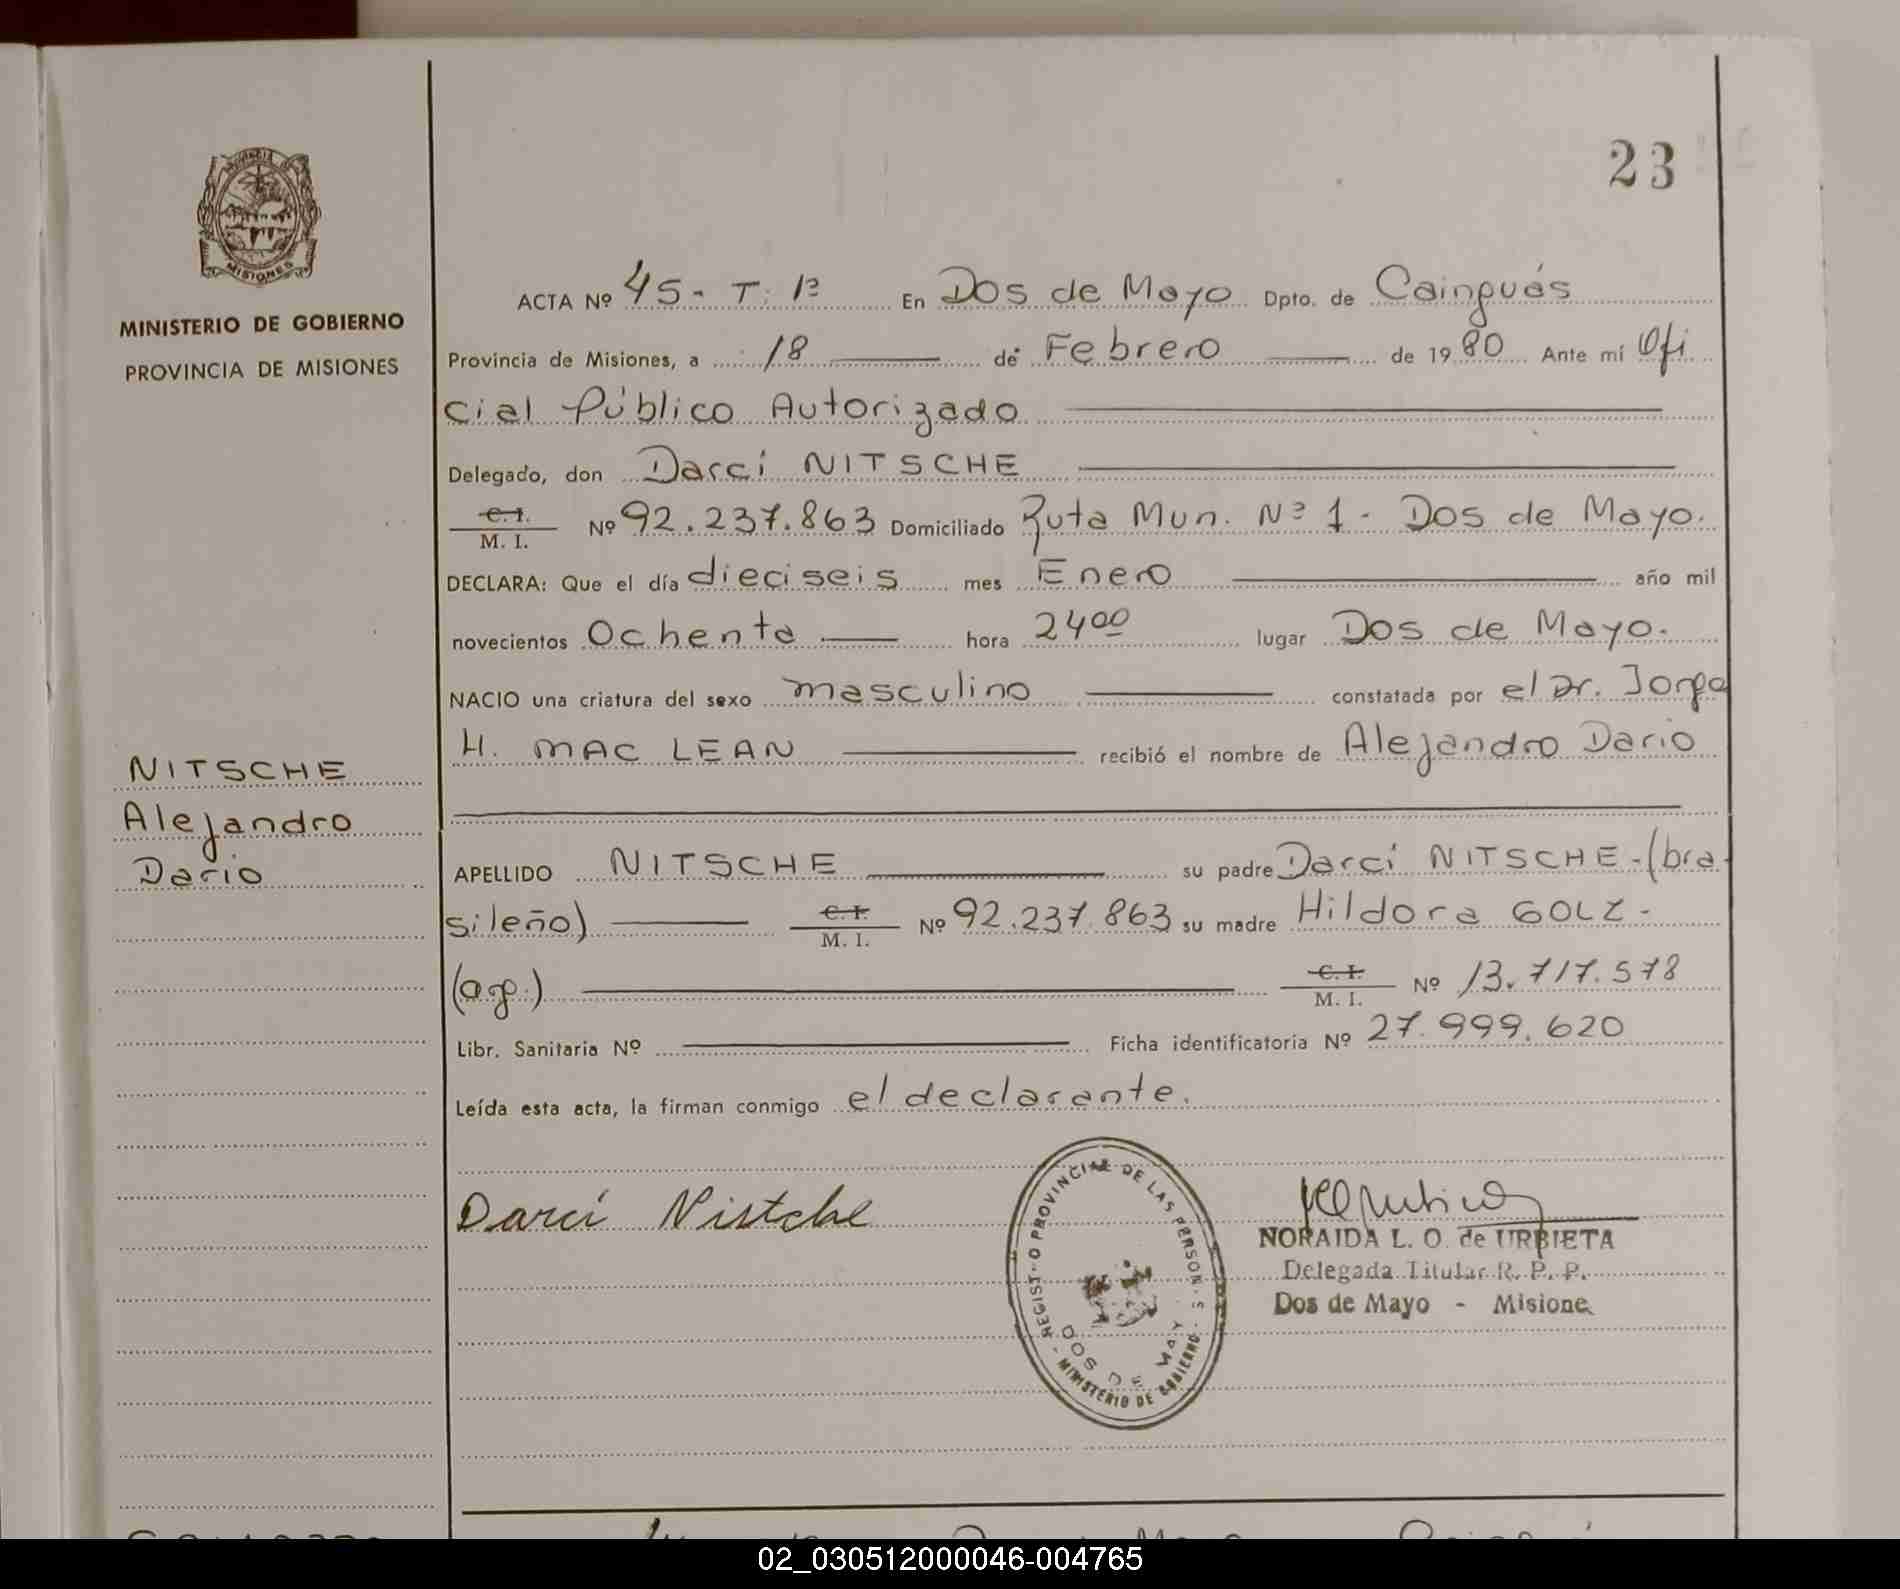 23
MISIONES
MINISTERIO DE GOBIERNO
PROVINCIA DE MISIONES
NITSCHE
Alejandro
Dario
ACTA Nº 45 - T: 1º En Dos de Mayo Dpto. de Cainguás
Provincia de Misiones, a 18 de Febrero de 1980 Ante mí Ofi
cial Público Autorizado
Delegado, don Darcí NITSCHE
C. I. M. I. Nº 92.237.863 Domiciliado Ruta Mun. Nº 1 - Dos de Mayo.
DECLARA: Que el día dieciseis mes Enero año mil
novecientos Ochenta hora 24 00 lugar Dos de Mayo.
NACIO una criatura del sexo masculino constatada por el Dr. Jorge
H. MAC LEAN recibió el nombre de Alejandro Dario
APELLIDO NITSCHE su padre Darcí NITSCHE - (bra-
sileño) C. I. M. I. Nº 92.237.863 su madre Hildora GOLZ -
(arg.) C. I. M. I. Nº 13.717.578
Libr. Sanitaria Nº Ficha identificatoria Nº 27.999.620
Leída esta acta, la firman conmigo el declarante.
Darcí Nistche
REGIST O PROVINCIAL DE LAS PERSON S - MINISTERIO DE GOBIERNO -
DOS DE MAY
NORAIDA L. O. de URBIETA
Delegada Titular R. P. P.
Dos de Mayo - Misione
02_030512000046-004765